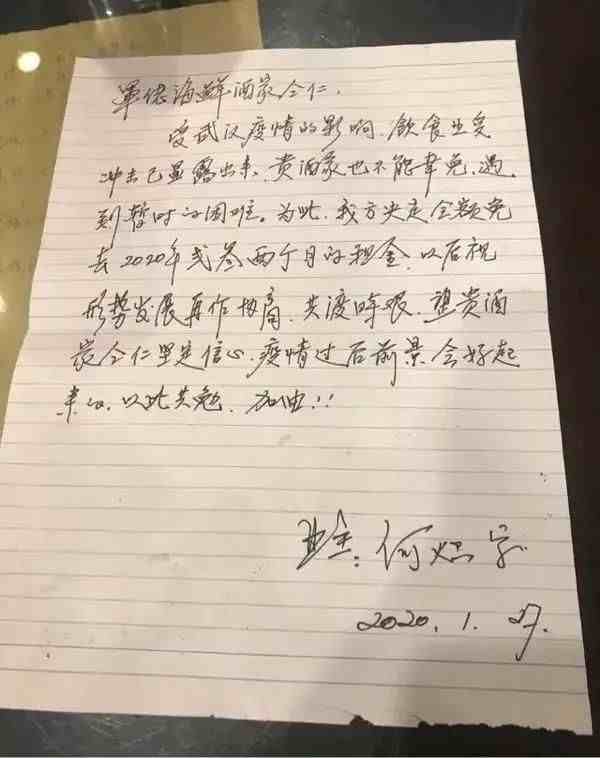 军佬海鲜酒家仝仁.
受武汉疫情的影响.饮食业受
冲击已显露出来、贵酒家也不能幸免.遇
到暂时的困难。为此.我方决定全额免
去2020年贰叁两个月的租金.以后视
形势发展再作协商.共渡时艰.望贵酒
家仝仁坚定信心.疫情过后前景会好起
来的.以此共勉.加油!!
业主:何
2020.1.27.